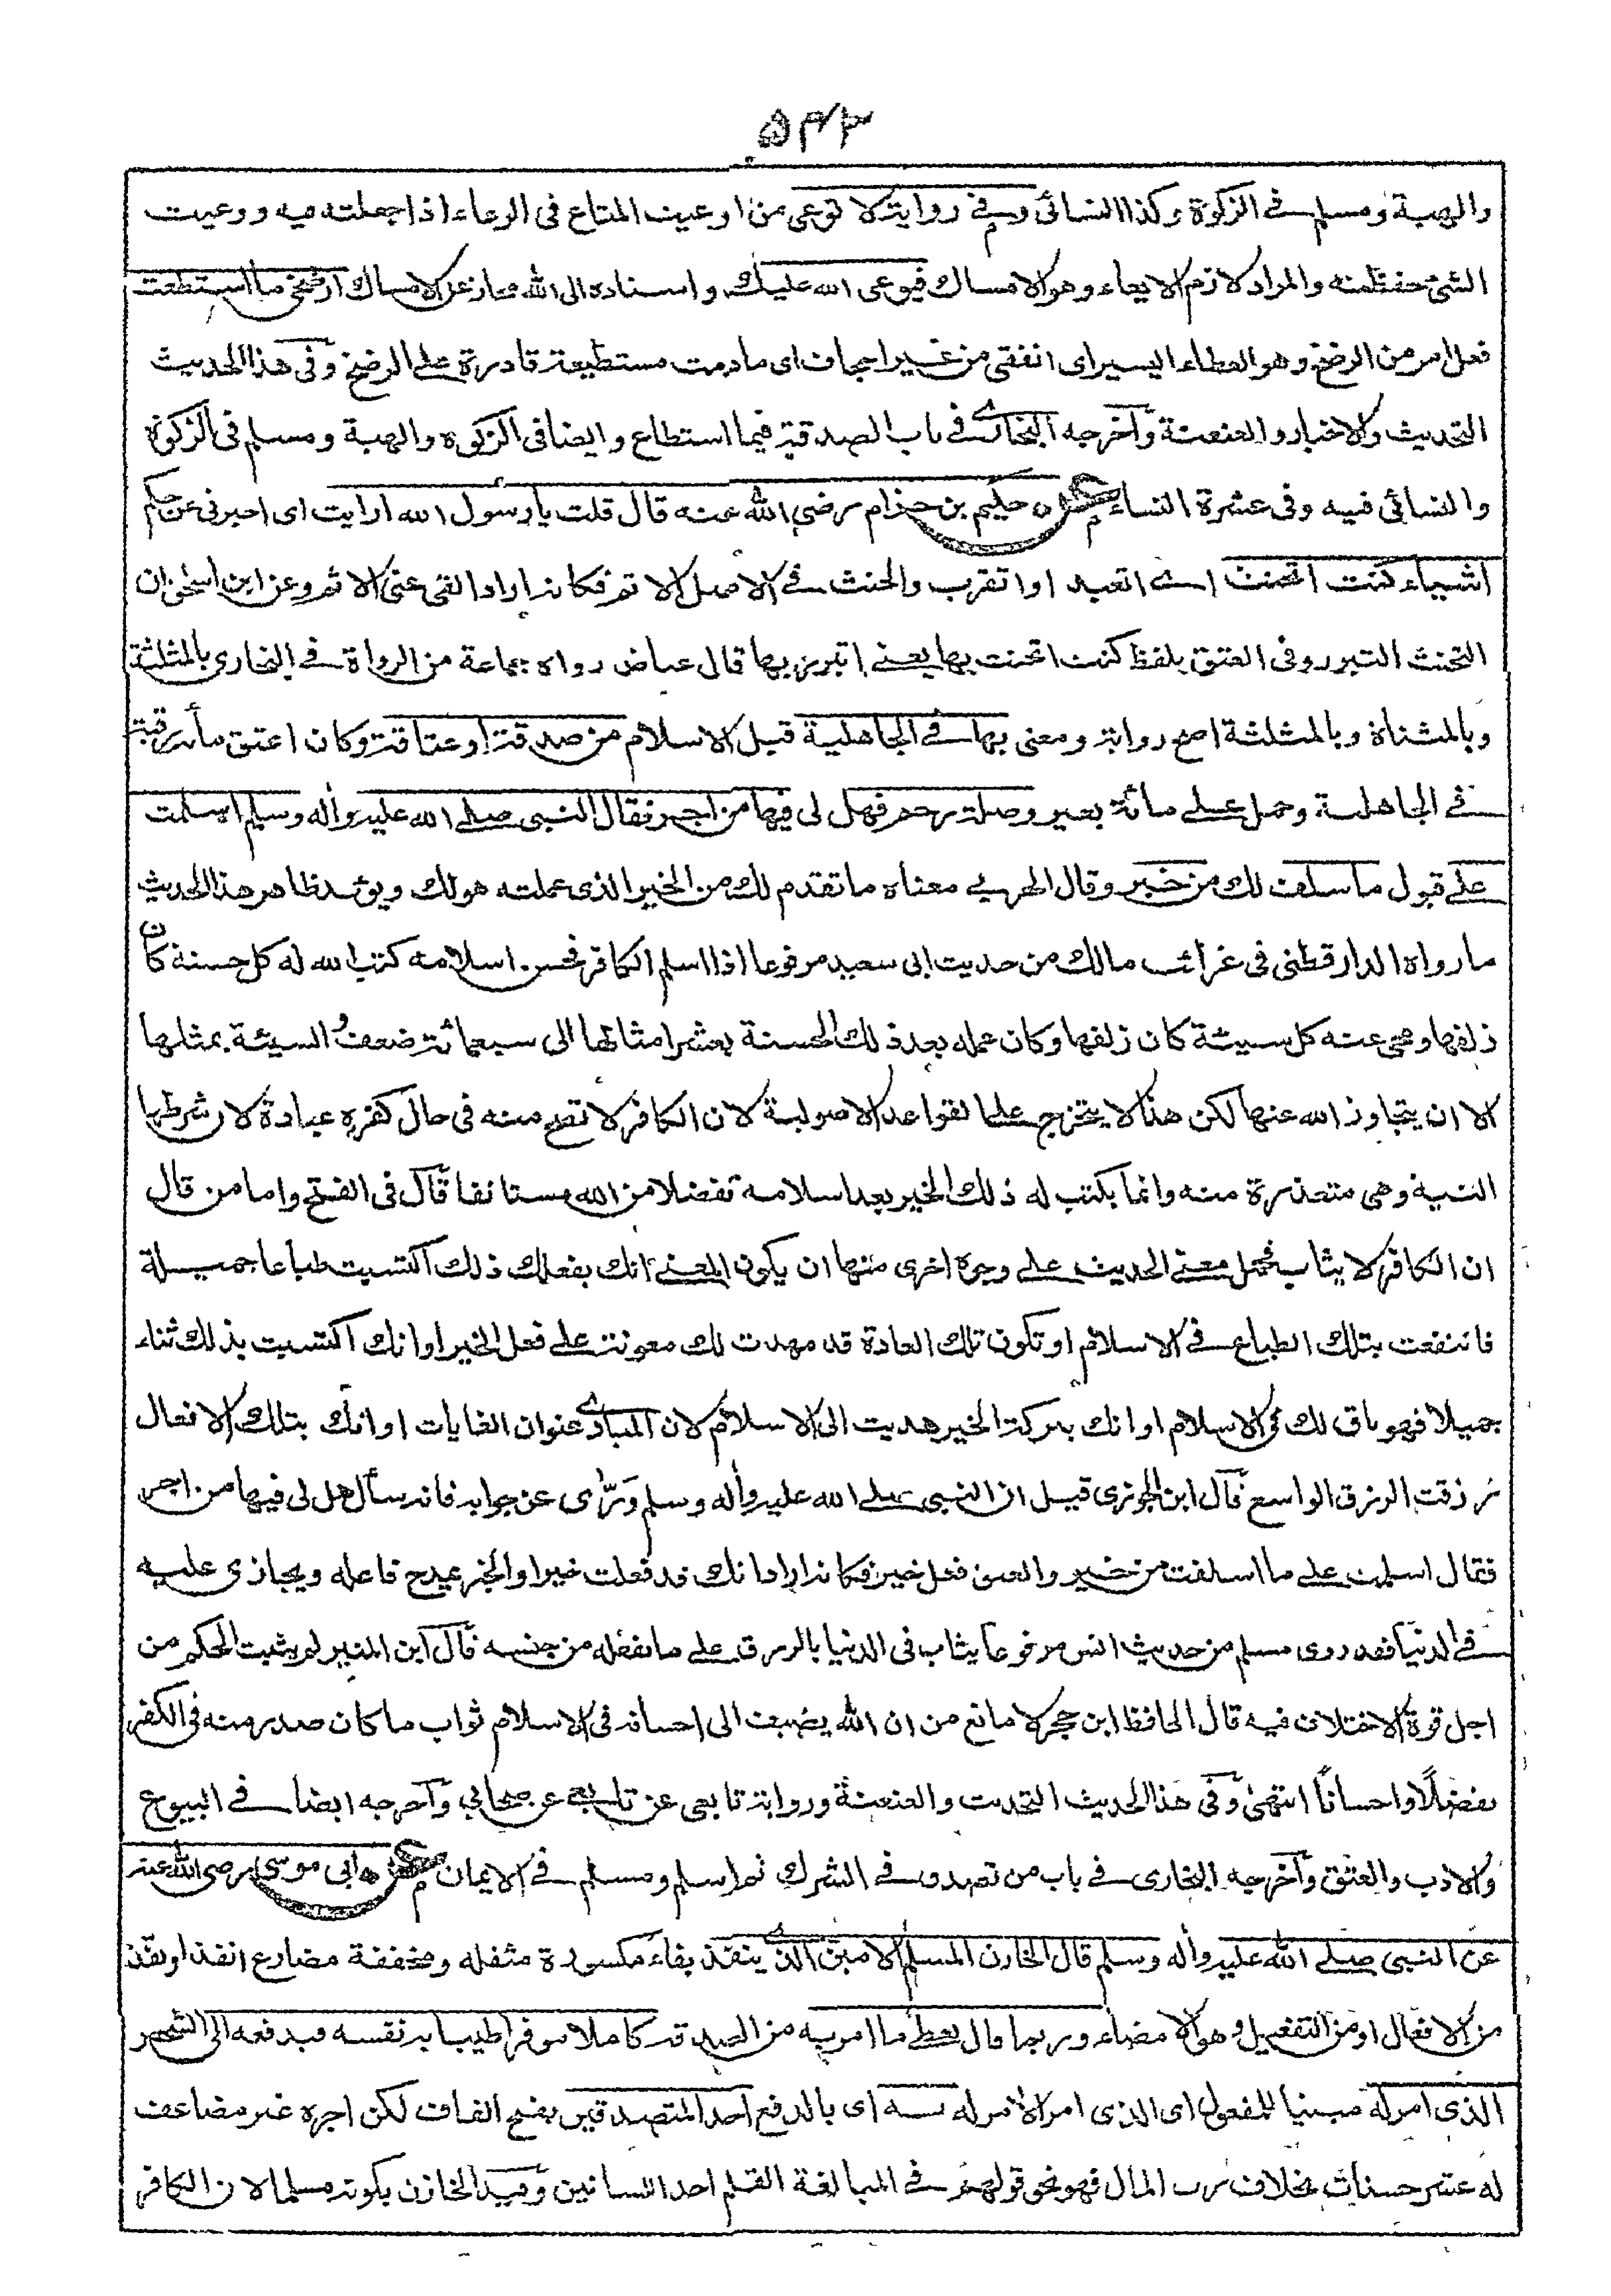 ۵۴۳
والهبة ومسلم في الزكوة وكذا النسائى وفي رواية لا توعى من اوعيت المتاع فى الوعاء اذا جعلته فيه ووعيت
الشئ حفظته والمراد لازم الايعاء وهو الامساك فيوعى الله عليك واسناده الى الله مجاز عن الامساك ارضخى ما استطعت
فعل امر من الرضخ وهو العطاء اليسير اى انفقى من غير اجحاف اى مادمت مستطيعة قادرة على الرضخ وفى هذا الحديث
التحديث والاخبار والعنعنة وآخرجه البخارى في باب الصدقة فيما استطاع وايضا فى الزكوة والهبة ومسلم فى الزكوة
والنسائى فيه وفى عشرة النساء عن حكيم بن حزام رضي الله عنه قال قلت يا رسول الله ارايت اى اخبرنى عن حكم
اشياء كنت اتحنث اے اتعبد او اتقرب والحنث في الاصل الاثم فكانه اراد القى عنى الاثم وعن ابن اسحٰق ان
التحنث التبرر وفى العتق بلفظ كنت اتحنث بها يعنے اتبرر بها قال عياض رواه جماعة من الرواة في البخارى بالمثلثة
وبالمثناة وبالمثلثة اصح رواية ومعنى بها في الجاهلية قبل الاسلام من صدقة او عتاقة وكان اعتق مأة رقبة
في الجاهلية وحمل علے مائة بعير وصلة رحم فهل لى فيها من اجر فقال النبى صلے الله عليه وأله وسلم اسلمت
علے قبول ما سلف لك من خير وقال الحربي معناه ما تقدم لك من الخير الذى عملته هو لك ويؤيد ظاهر هذا الحديث
ما رواه الدارقطنى فى غرائب مالك من حديث ابى سعيد مرفوعا اذا اسلم الكافر فحسن اسلامه كتب الله له كل حسنة كان
زلفها ومحى عنه كل سيئة كان زلفها وكان عمله بعد ذلك الحسنة بعشر امثالها الى سبعمائة ضعف والسيئة بمثلها
الا ان يتجاوز الله عنها لكن هذا لا يتخرج على القواعد الاصولية لان الكافر لا تصح منه فى حال كفره عبادة لان شرطها
النية وهى متعذرة منه وانما يكتب له ذلك الخير بعد اسلامه تفضلا من الله مستانفا قال فى الفتح واما من قال
ان الكافر لا يثاب فحمل معنى الحديث علے وجوه اخرى منها ان يكون المعنے انك بفعلك ذلك اكتسبت طباعا جميلة
فانتفعت بتلك الطباع في الاسلام او تكون تلك العادة قد مهدت لك معونة علے فعل الخير او انك اكتسبت بذلك ثناء
جميلا فهو باق لك فى الاسلام او انك ببركة الخير هديت الى الاسلام لان المبادى عنوان الغايات او انك بتلك الافعال
رزقت الرزق الواسع قال ابن الجوزى قيل ان النبى صلے الله عليه وأله وسلم ورّى عن جوابه فانه سأل هل لى فيها من اجر
فقال اسلمت علے ما اسلفت من خير والعتق فعل خير فكانه اراد انك قد فعلت خيرا والخير يمدح فاعله ويجازى عليه
في الدنيا فقد روى مسلم من حديث انس مرفوعا يثاب فى الدنيا بالرزق علے ما يفعله من حسنة قال ابن المنير لم يثبت الحكم من
اجل قوة الاختلاف فيه قال الحافظ ابن حجر لا مانع من ان الله يضيف الى احسانه فى الاسلام ثواب ما كان صدر منه فى الكفر
تفضلًا واحسانًا انتهىٰ وفى هذا الحديث التحديث والعنعنة ورواية تابعى عن تابعي عن صحابي وآخرجه ايضا في البيوع
والادب والعتق وآخرجه البخارى في باب من تصدق في الشرك ثم اسلم ومسلم في الايمان عن ابى موسى رضى الله عنه
عن النبى صلے الله عليه وأله وسلم قال الخازن المسلم الامين الذى ينفذ بفاء مكسورة مثقله ومخففة مضارع انفذ او نفّذ
من الافعال او من التفعيل وهو الامضاء وربما قال يعطے ما امر به من الصدقة كاملا موفرا طيبا به نفسه فيدفعه الى الشخص
الذى امر له مبنيا للمفعول اى الذى امر الآمر له به اى بالدفع احد المتصدقين بفتح القاف لكن اجره غير مضاعف
له عشر حسنات بخلاف رب المال فهو نحو قولهم في المبالغة القلم احد اللسانين وقيد الخازن بكونه مسلما لان الكافر